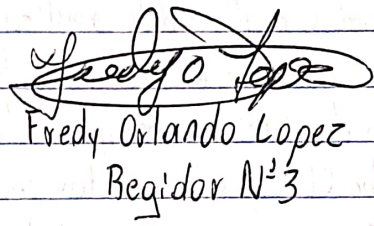 Fredy O Lopez
Fredy Orlando Lopez
Regidor Nº3